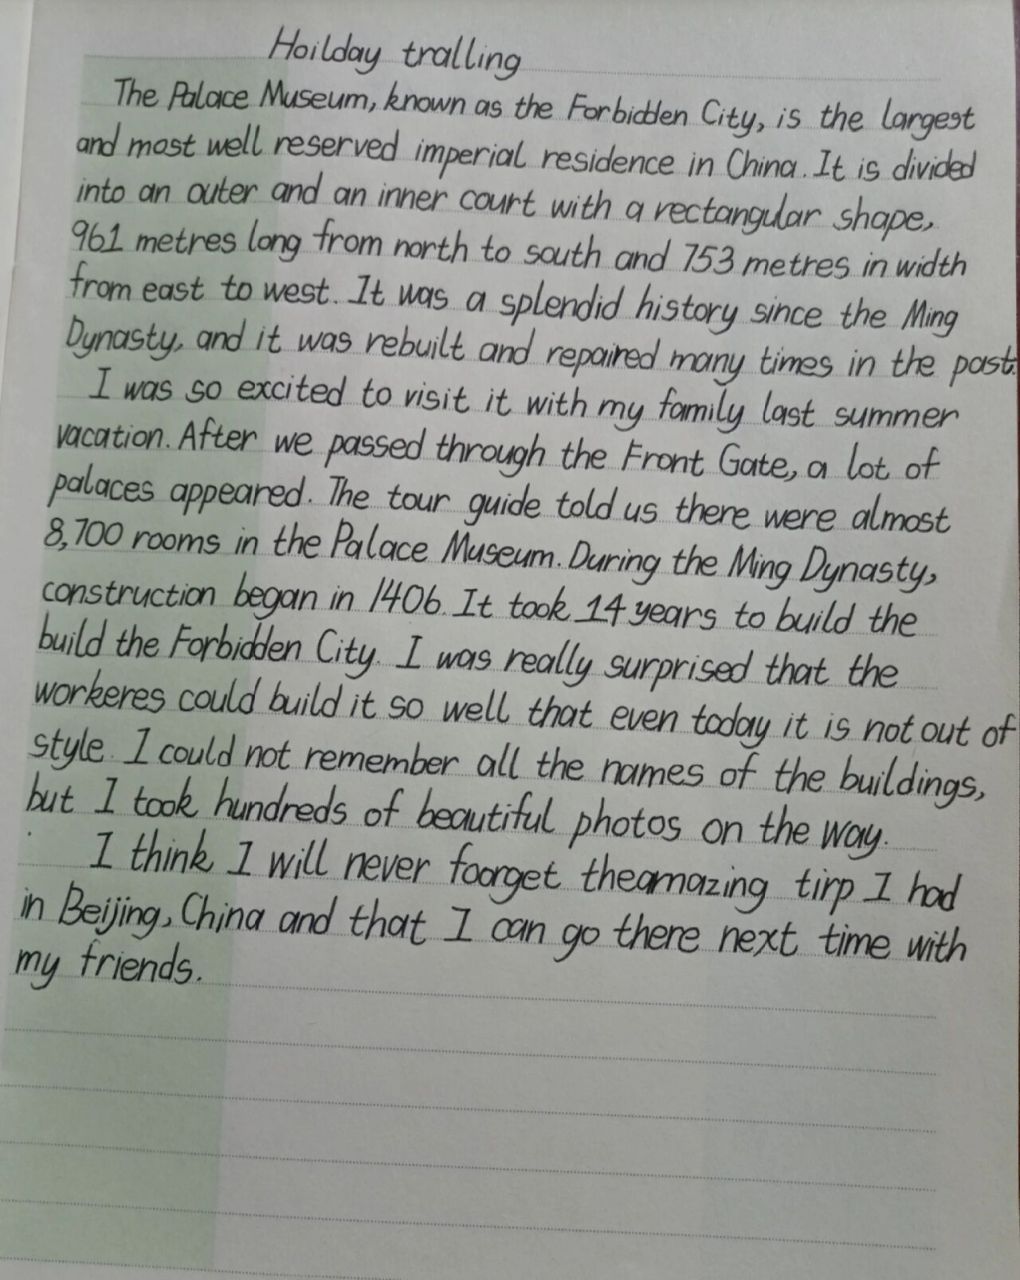 Hoilday tralling
The Palace Museum, known as the Forbidden City, is the largest
and most well reserved imperial residence in China. It is divided
into an outer and an inner court with a rectangular shape,
961 metres long from north to south and 753 metres in width
from east to west. It was a splendid history since the Ming
Dynasty, and it was rebuilt and repaired many times in the past.
I was so excited to visit it with my family last summer
vacation. After we passed through the Front Gate, a lot of
palaces appeared. The tour guide told us there were almost
8,700 rooms in the Palace Museum. During the Ming Dynasty,
construction began in 1406. It took 14 years to build the
build the Forbidden City. I was really surprised that the
workeres could build it so well that even today it is not out of
style. I could not remember all the names of the buildings,
but I took hundreds of beautiful photos on the way.
I think I will never foorget theamazing tirp I had
in Beijing, China and that I can go there next time with
my friends.